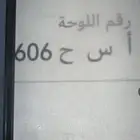 رقم اللوحة
أ س ح 606